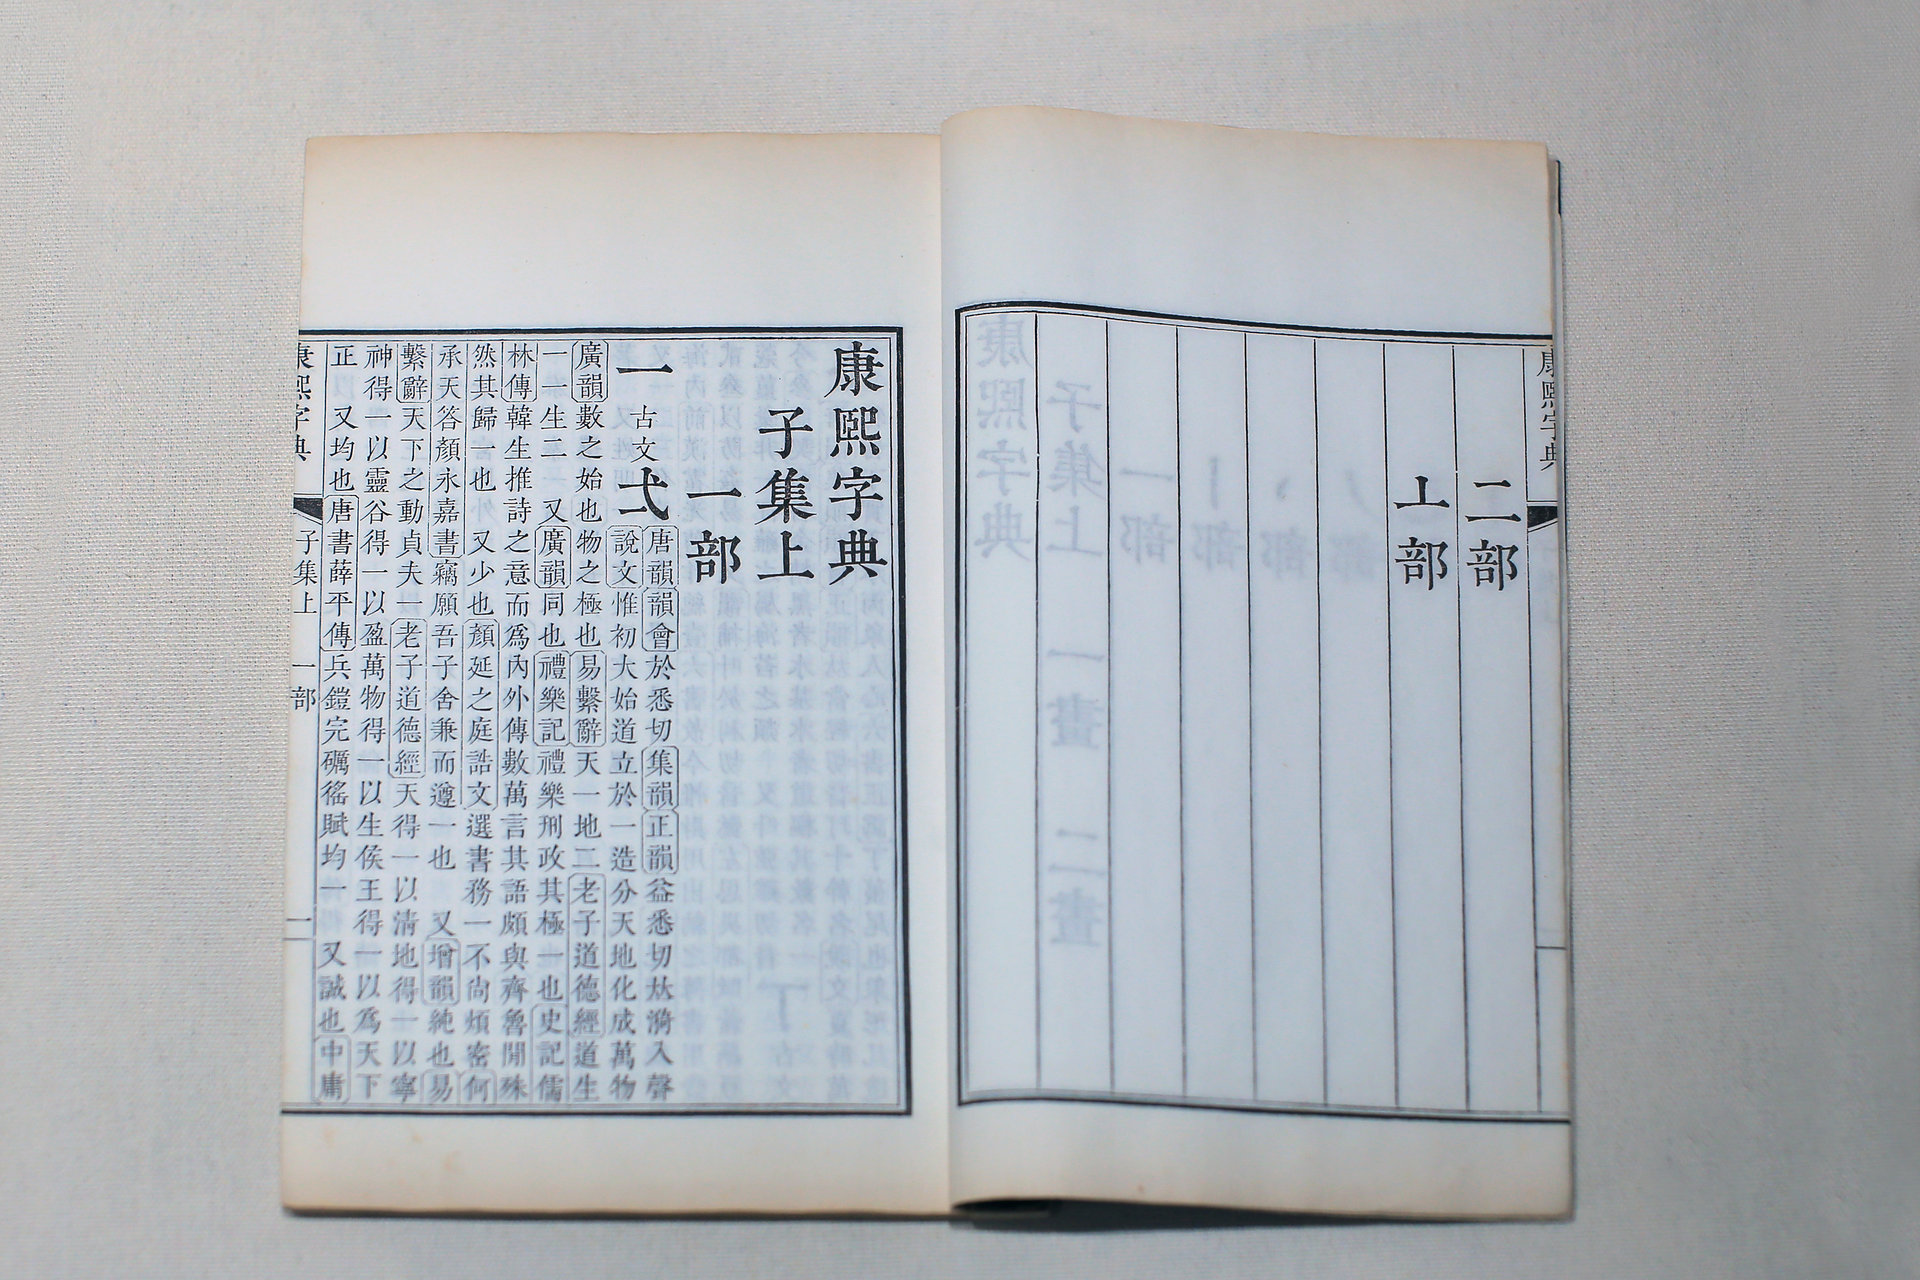 康熙字典
二部
亠部
康熙字典
子集上
一部
一 古文 弌 唐韻韻會於悉切集韻正韻益悉切𠀤漪入聲
說文惟初大始道立於一造分天地化成萬物
廣韻數之始也物之極也易繫辭天一地二老子道德經道生
一一生二 又廣韻同也禮樂記禮樂刑政其極一也史記儒
林傳韓生推詩之意而爲內外傳數萬言其語頗與齊魯閒殊
然其歸一也 又少也顏延之庭誥文選書務一不尚煩密何
承天答顏永嘉書竊願吾子舍兼而遵一也 又增韻純也易
繫辭天下之動貞夫一老子道德經天得一以清地得一以寧
神得一以靈谷得一以盈萬物得一以生侯王得一以爲天下
正 又均也唐書薛平傳兵鎧完礪徭賦均一 又誠也中庸
康熙字典 子集上 一部 一